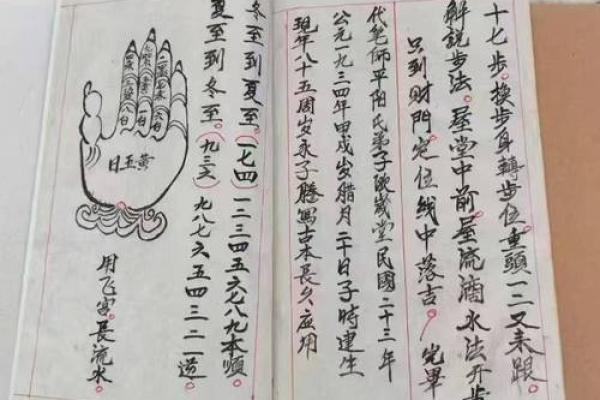 十七步。换步身轉步位。重頭一二又来跟。
解説步法。屋堂中前。屋流滴水法开步
只到财門。定位线中落吉。完畢
代笔师平阳氏弟子欧歲堂民國二十三年
公元一九三四年甲戌岁腊月二十日子時建生
現年八十五周岁永子腾写古本長久应用
冬至到夏至。(一七四)一二三四五六七八九本順。
夏至到冬至。(九三六)九八七六五四三二一逆。
用飞宫。長流水。
黄五日